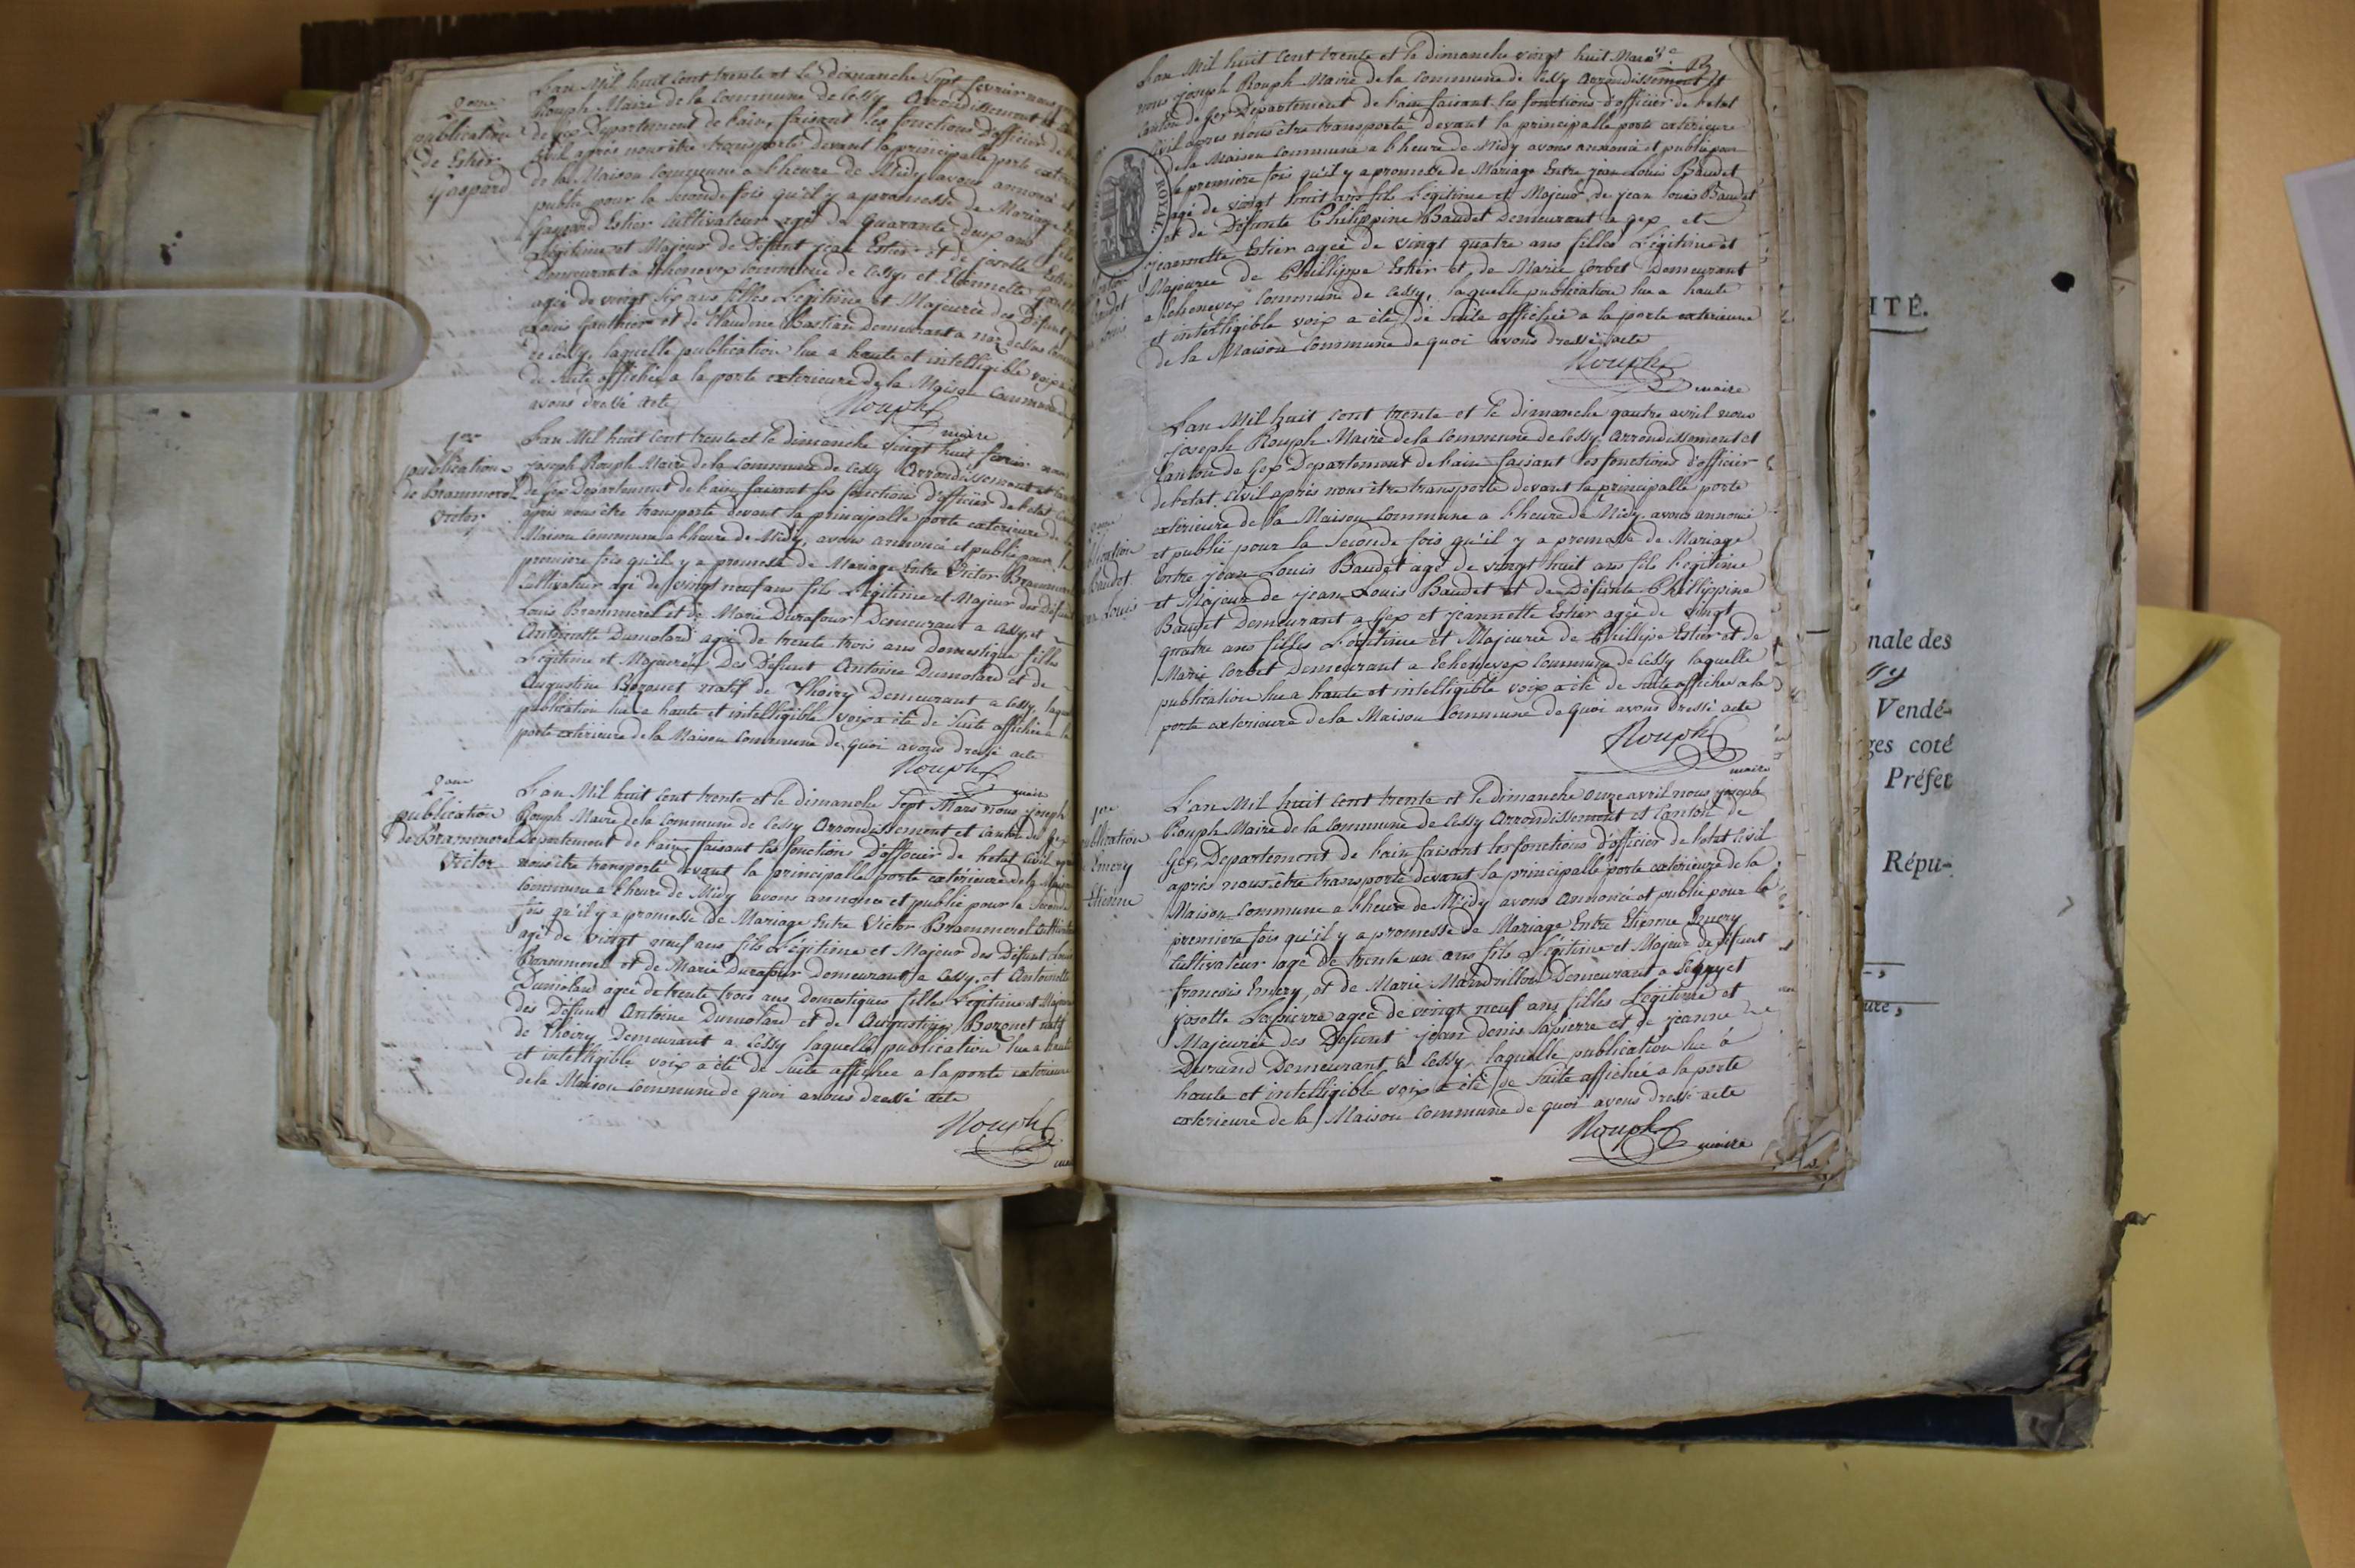 2eme
publication
de Estier
Gaspard
L'an Mil huit Cent trente et Le dimanche Sept fevrier nous
Rouph Maire de la Commune de Cessy Arrondissement et
de Gex Departement de L'ain, faisant les fonctions d'officier de
Civil après nous être transporté devant la principalle porte
de la Maison Commune a L'heure de Midy avons annoncé et
publié pour la Seconde fois qu'il y a promesse de Mariage
Gaspard Estier Cultivateur agé de quarante deux ans fils
Légitime et Majeur de Défunt Jean Estier et de Josette Estier
Demeurant a Echenevex Commune de Cessy et Etiennette
agée de vingt Six ans filles Légitime et Majeurée des Défunt
Louis Gauthier et de Claudine Bastian Demeurant a
de Cessy, laquelle publication lue a haute et intelligible voix a
de Suite affichée a la porte exterieure de la Maison Commune
avons dressé acte
Rouph
maire
1ere
publication
de Brammerel
Victor
L'an Mil huit Cent trente et le dimanche vingt huit fevrier nous
Joseph Rouph Maire de la Commune de Cessy Arrondissement et
de Gex Departement de L'ain faisant les fonctions d'officier de L'etat
après nous être transporté devant la principalle porte exterieure de
Maison Commune a L'heure de Midy, avons annoncé et publié pour la
premiere fois qu'il y a promesse de Mariage Entre Victor
Cultivateur agé de vingt neuf ans fils Légitime et Majeur des Défunt
Louis Brammerel et de Marie Durafour Demeurant a Cessy, et
Antoinette Dumolard agée de trente trois ans domestique filles
Légitime et Majeurée Des Défunt Antoine Dumolard et de
Augustine Bozonet natif de Thoiry Demeurant a Cessy,
publication lue a haute et intelligible voix a été de Suite affichée a la
porte extérieure de la Maison Commune de quoi avons dressé acte
Rouph
maire
2eme
publication
de Brammerel
Victor
L'an Mil huit Cent trente et le dimanche Sept Mars nous Joseph
Rouph Maire de la Commune de Cessy Arrondissement et Canton de Gex
Departement de L'ain faisant les fonctions D'officier de L'etat Civil
nous être transporté devant la principalle porte extérieure de la
Commune a L'heure de Midy avons annoncé et publié pour la Seconde
fois qu'il y a promesse de Mariage Entre Victor Brammerel
agé de vingt neuf ans fils Légitime et Majeur des Défunt Louis
Brammerel et de Marie Durafour Demeurant a Cessy, et Antoinette
Dumolard agée de trente trois ans Domestique filles Légitime et
des Défunt Antoine Dumolard et de Augustine Bozonet natif
de Thoiry Demeurant a Cessy laquelle publication lue a haute
et intelligible voix a été de Suite affichée a la porte exterieure
de la Maison Commune de quoi avons dressé acte
Rouph
L'an Mil huit Cent trente et le dimanche vingt huit Mars
nous Joseph Rouph Maire de la Commune de Cessy Arrondissement et
Canton de Gex Département de L'ain faisant les fonctions d'officier de L'etat
Civil apres nous être transporté devant la principalle porte exterieure
de la Maison Commune a L'heure de Midy avons annoncé et publié pour
la premiere fois qu'il y a promesse de Mariage Entre Jean Louis Baudet
agé de vingt huit ans fils Légitime et Majeur de Jean Louis Baudet
et de Défunte Philippine Baudet Demeurant a Gex, et
Jeannette Estier agée de vingt quatre ans filles Légitime et
Majeurée de Phillippe Estier et de Marie Corbet Demeurant
a Echenevex Commune de Cessy, laquelle publication lue a haute
et intelligible voix a été de Suite affichée a la porte exterieure
de la Maison Commune de quoi avons dressé acte
ROYAL.
Rouph
maire
publication
Baudet
Louis
L'an Mil huit Cent trente et le dimanche quatre avril nous
Joseph Rouph Maire de la Commune de Cessy Arrondissement et
Canton de Gex Departement de L'ain faisant les fonctions d'officier
de L'etat Civil après nous être transporté devant la principalle porte
extérieure de la Maison Commune a L'heure de Midy avons annoncé
et publié pour la Seconde fois qu'il y a promesse de Mariage
Entre Jean Louis Baudet agé de vingt huit ans fils Légitime
et Majeur de Jean Louis Baudet et de Défunte Phillippine
Baudet Demeurant a Gex et Jeannette Estier agée de vingt
quatre ans filles Légitime et Majeurée de Phillipe Estier et de
Marie Corbet Demeurant a Echenevex Commune de Cessy laquelle
publication lue a haute et intelligible voix a été de Suite affichée a la
porte exterieure de la Maison Commune de quoi avons dressé acte
Rouph
maire
1ere
publication
Emery
Etienne
L'an Mil huit Cent trente et le dimanche onze avril nous Joseph
Rouph Maire de la Commune de Cessy Arrondissement et Canton de
Gex, Departement de L'ain faisant les fonctions d'officier de L'etat Civil
après nous être transporté devant la principalle porte extérieure de la
Maison Commune a L'heure de Midy avons Annoncé et publié pour la
premiere fois qu'il y a promesse de Mariage Entre Etienne Emery
Cultivateur agé de trente un ans fils Légitime et Majeur de Défunt
francois Emery, et de Marie Mandrillon Demeurant a Segny et
Josette Lapierre agée de vingt neuf ans filles Légitime et
Majeurée des Défunt Jean Denis Lapierre et de Jeanne
Durand Demeurant a Cessy, laquelle publication lue à
haute et intelligible voix a été de Suite affichée a la porte
exterieure de la Maison Commune de quoi avons dressé acte
Rouph
maire
ITÉ.
nale des
Vendé-
ges coté
Préfet
Répu-